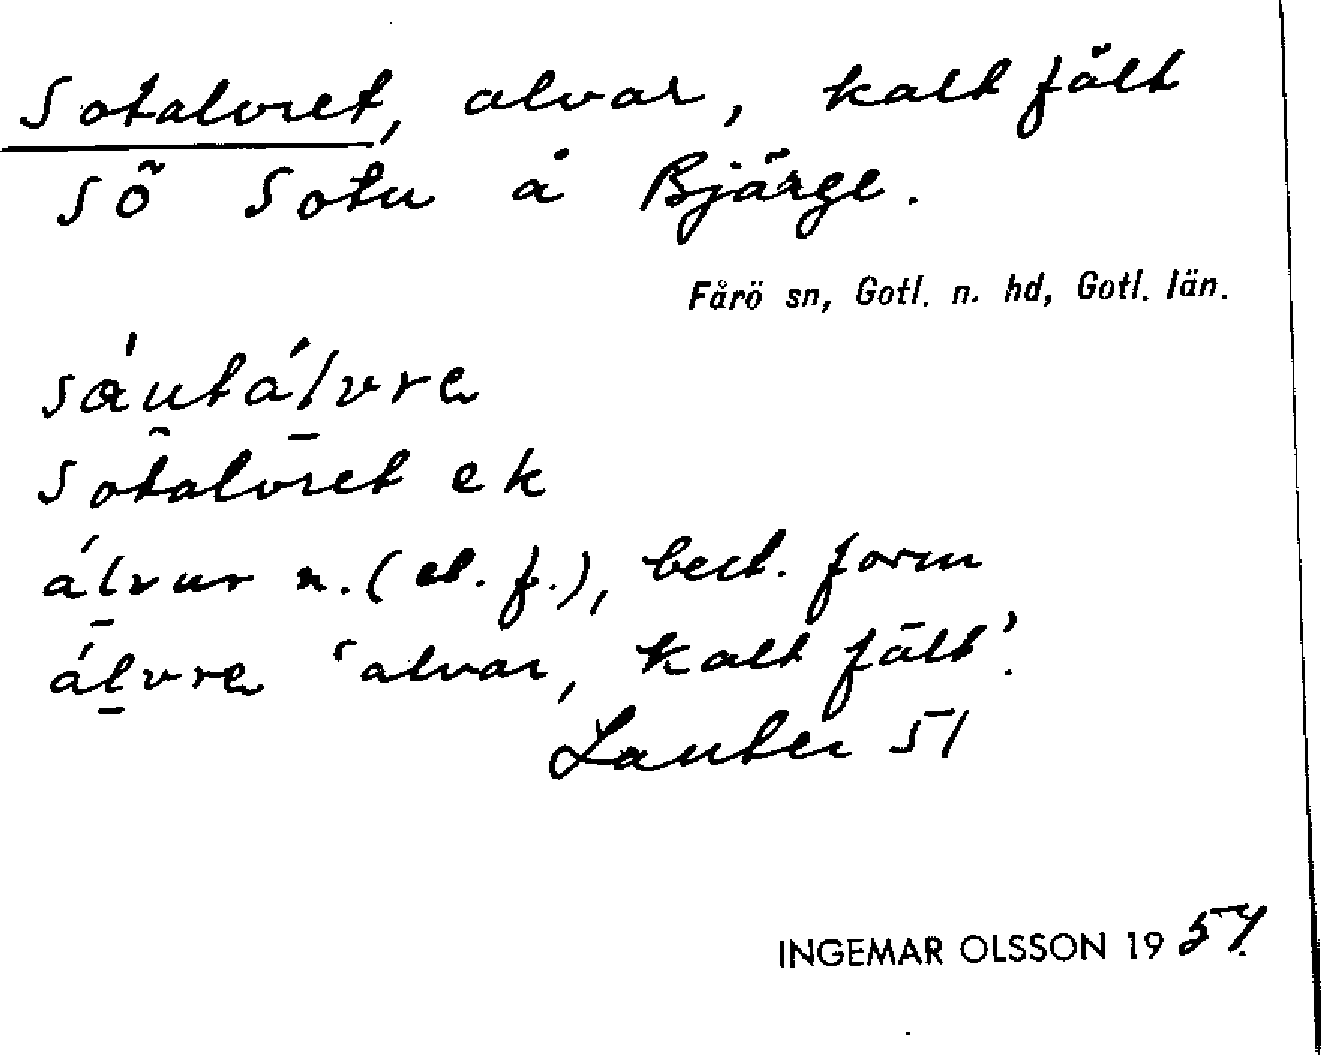 Sotalvret, alvar, kalt fält
SÖ Sotu å Bjärge.
Fårö sn, Gotl. n. hd, Gotl. län.
sáutálvre
Sotalvret ek
álvur n. (el. f.), best. form
álvre 'alvar, kalt fält'.
Lauter 51
INGEMAR OLSSON 19